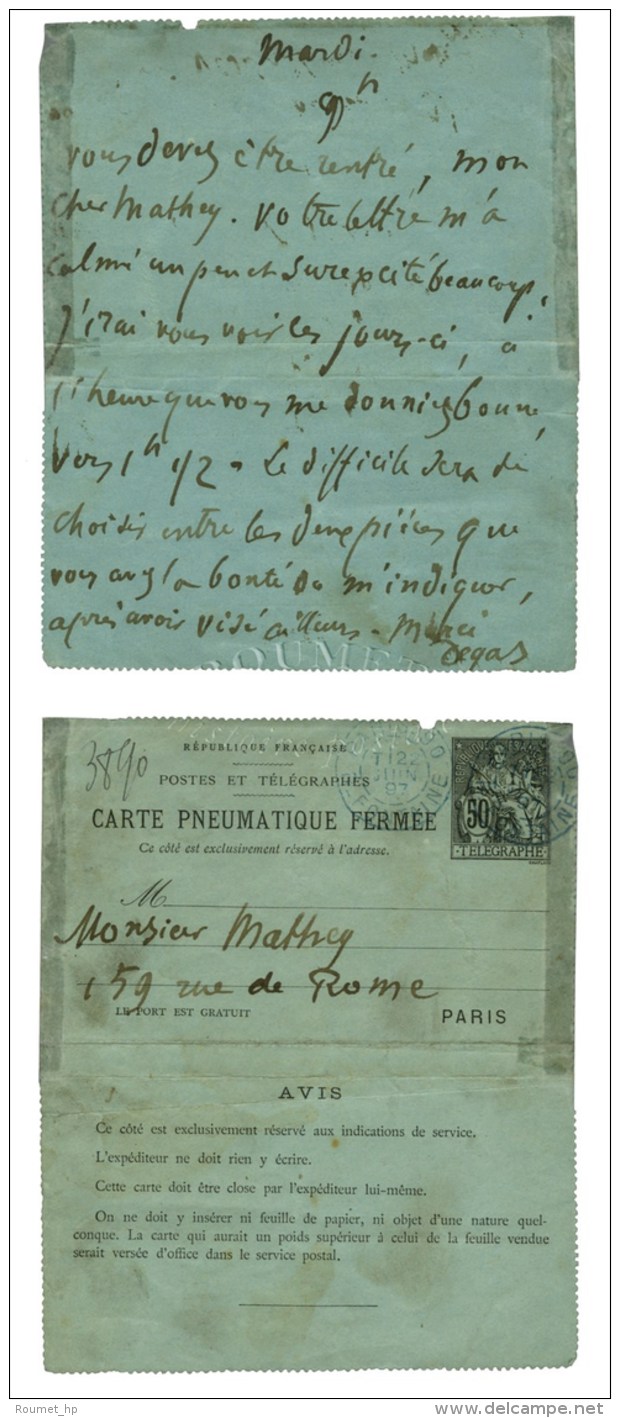 Mardi.
9h
Vous devez être rentré, mon
cher Mathey. Votre lettre m'a
calmé un peu et surexcité beaucoup.
J'irai vous voir ces jours-ci, à
l'heure que vous me donniez bonne,
vers 1h 1/2. Le difficile sera de
choisir entre les deux pièces que
vous avez la bonté de m'indiquer,
après avoir visé ailleurs. Merci
Degas
ROUMET
3890
RÉPUBLIQUE FRANÇAISE
POSTES ET TÉLÉGRAPHES
CARTE PNEUMATIQUE FERMÉE
Ce côté est exclusivement réservé à l'adresse.
JUIN
97
50
TÉLÉGRAPHE
M
Monsieur Mathey
159 rue de Rome
LE PORT EST GRATUIT
PARIS
AVIS
Ce côté est exclusivement réservé aux indications de service.
L'expéditeur ne doit rien y écrire.
Cette carte doit être close par l'expéditeur lui-même.
On ne doit y insérer ni feuille de papier, ni objet d'une nature quel-
conque. La carte qui aurait un poids supérieur à celui de la feuille vendue
serait versée d'office dans le service postal.
Roumet_hp
delcampe.net